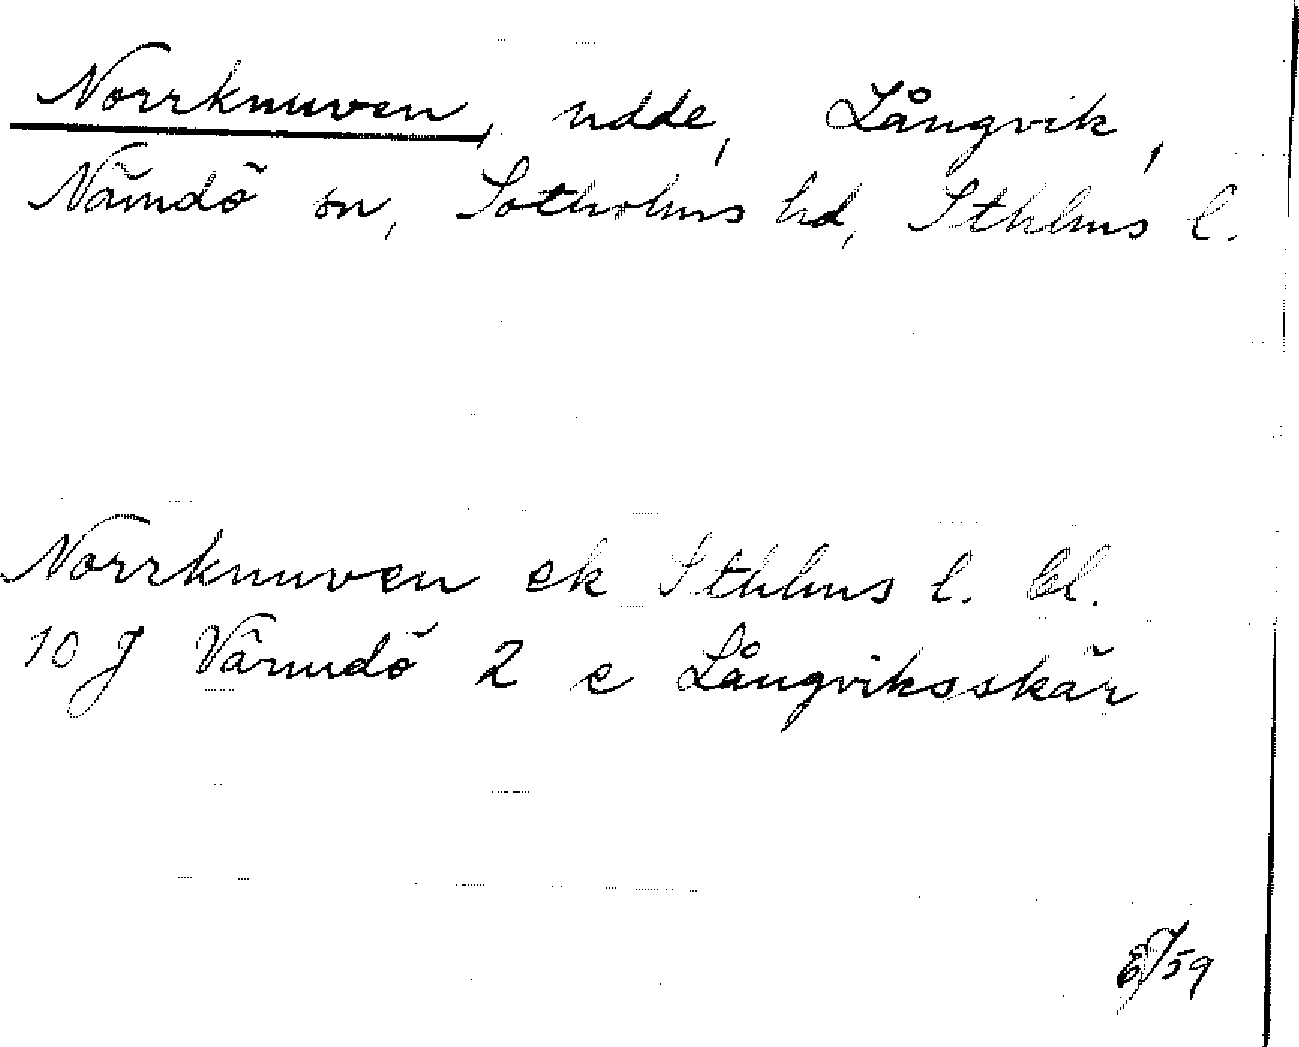 Norrknuven, udde, Långvik,
Nämdö sn, Sotholms hd, Sthlms l.
Norrknuven ek Sthlms l. bl.
10 J Värmdö 2 e Långviksskär
/59